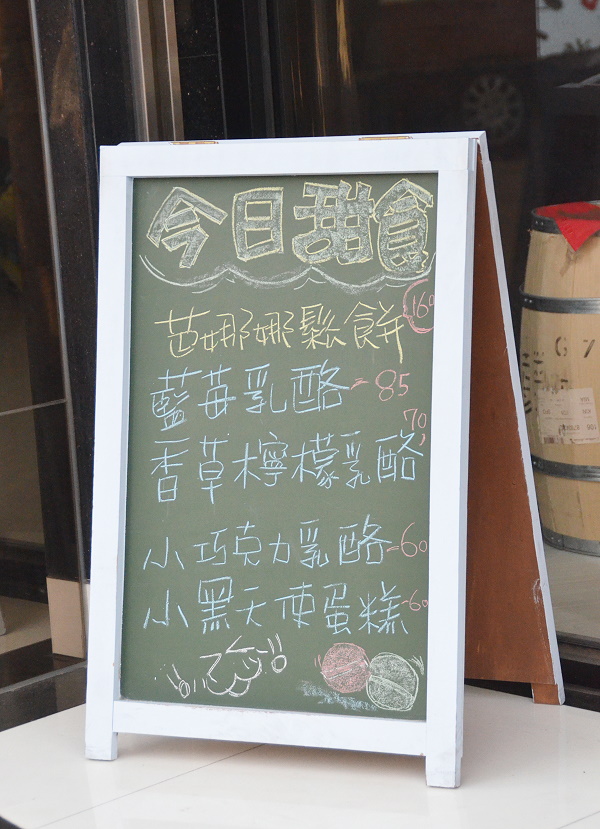 今日甜食
芭娜娜鬆餅 160
藍莓乳酪-85
香草檸檬乳酪 70,
小巧克力乳酪-60
小黑天使蛋糕-60
G 7